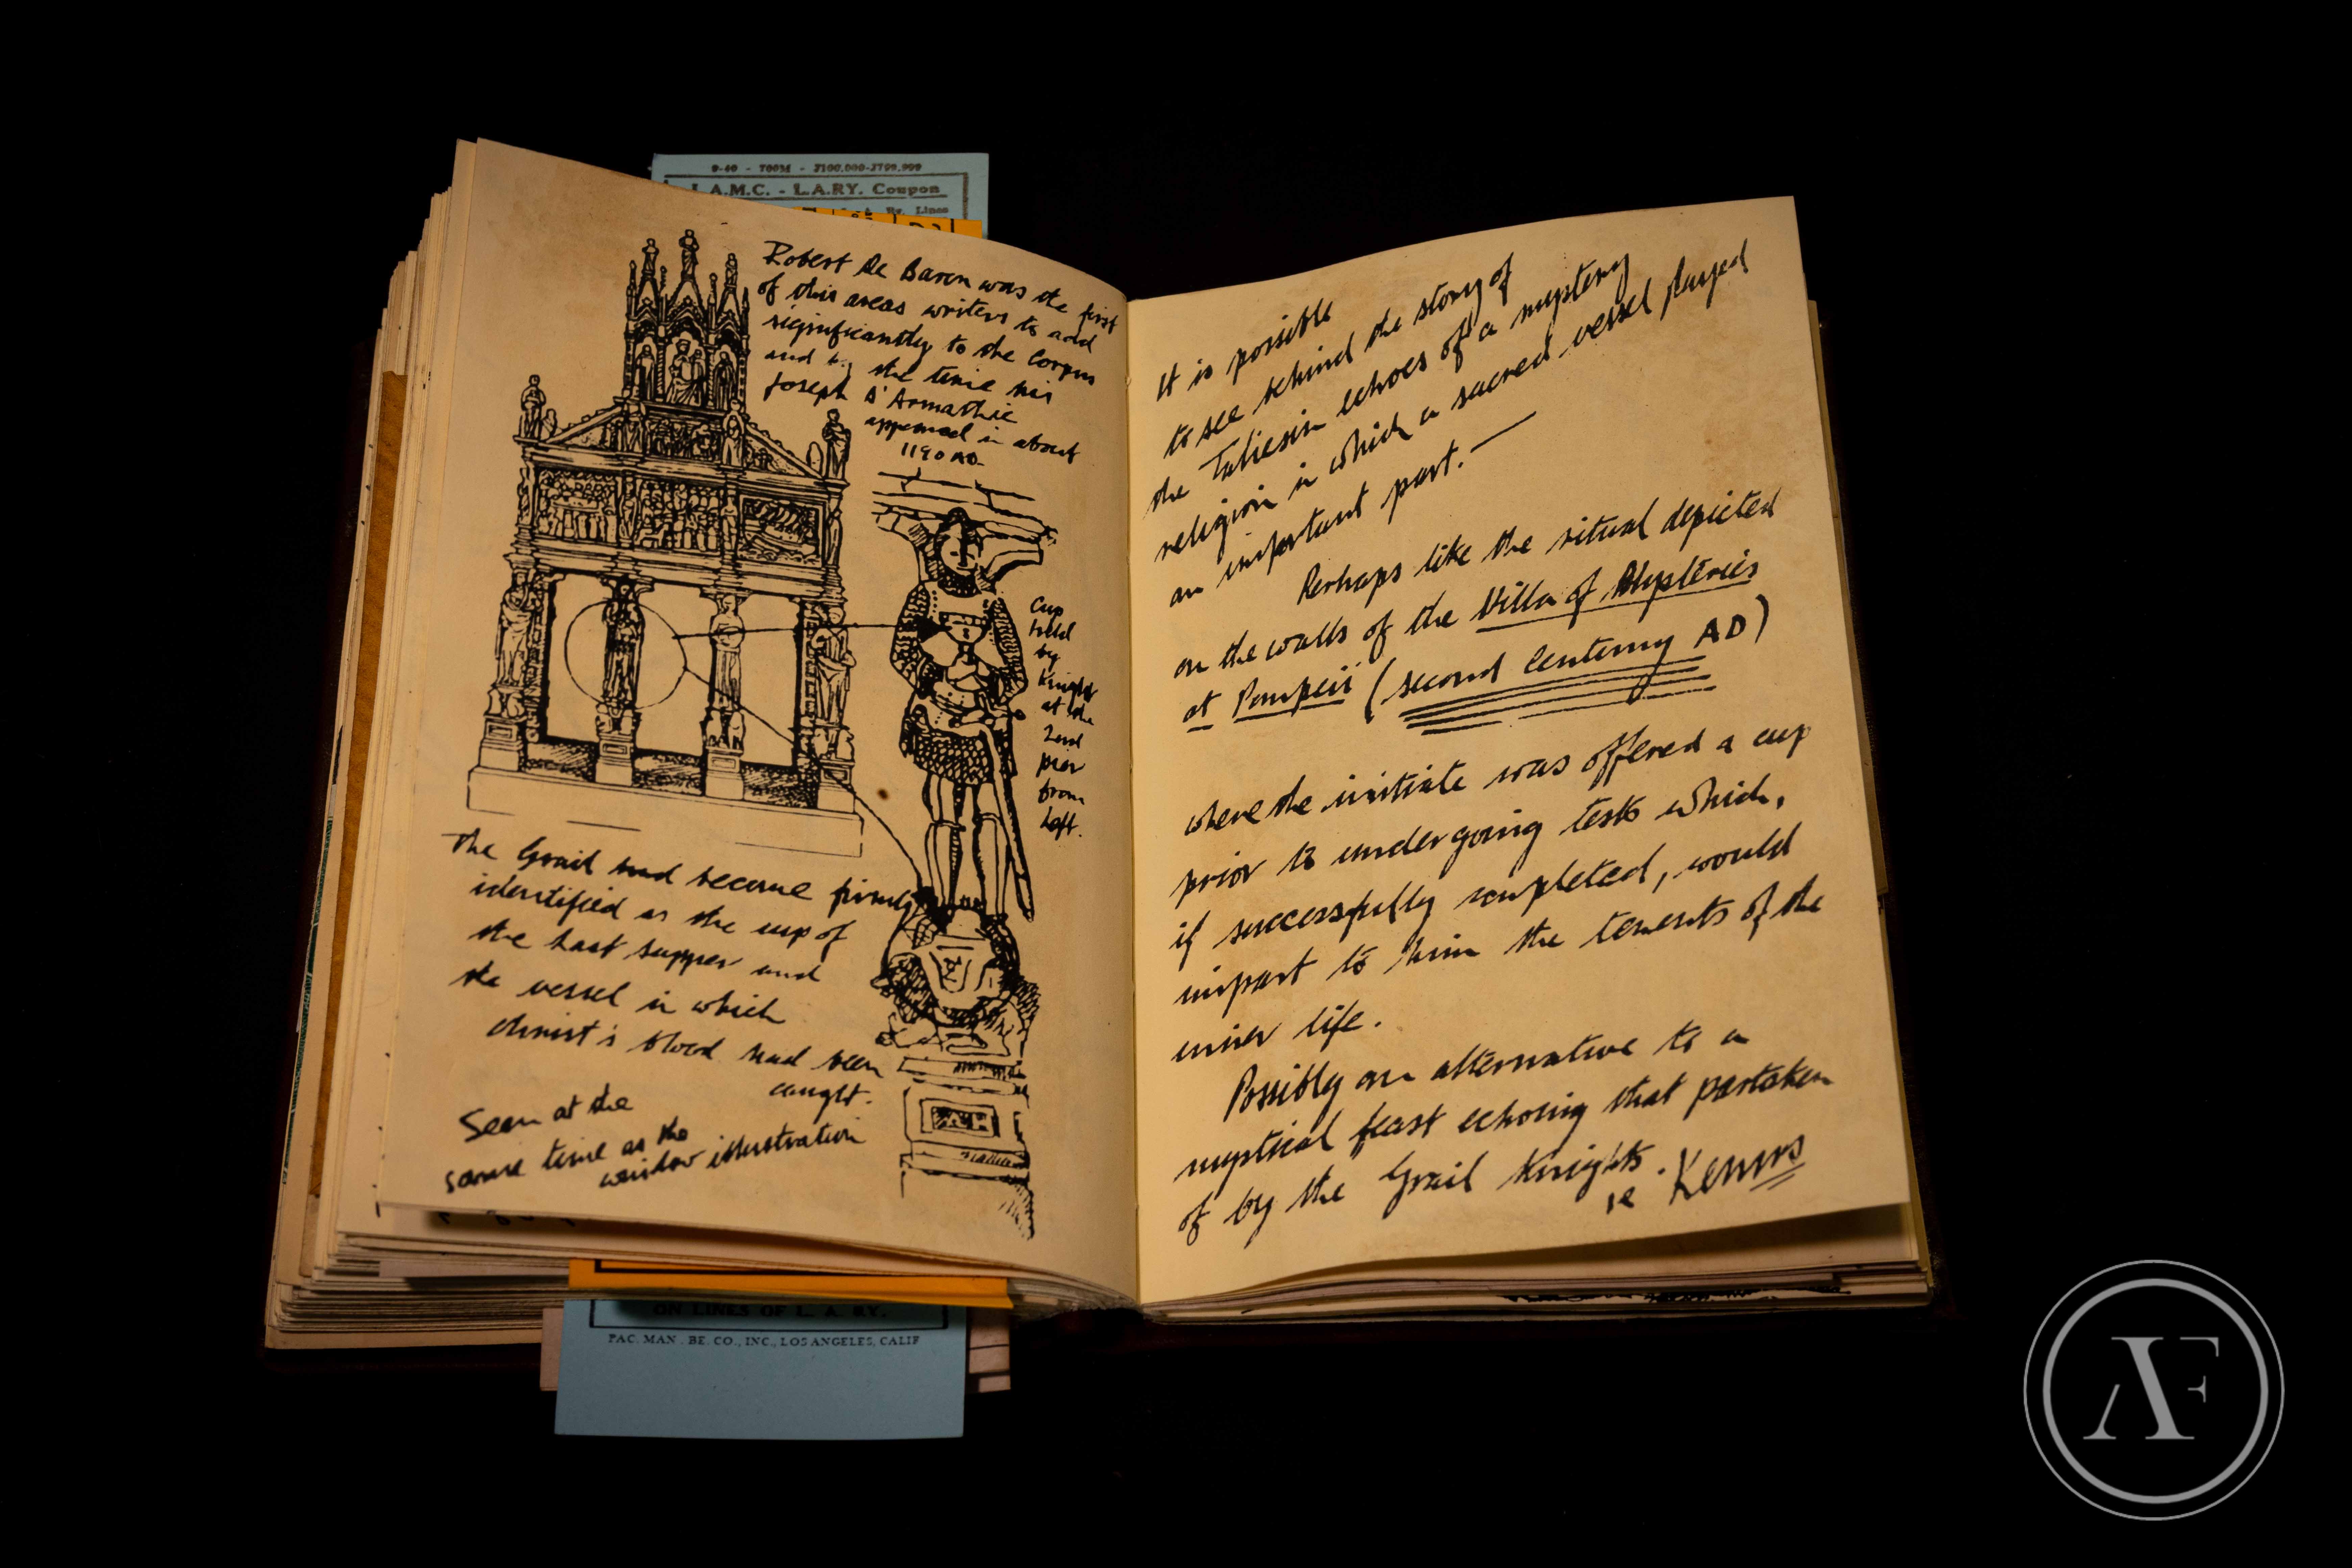 9-40 - 700M - J100,000-J799,999
L.A.M.C. - L.A.RY. Coupon
Ry. Lines
Robert De Baron was the first
of this areas writers to add
significantly to the Corpus
and by the time his
Joseph D'Armathie
appeared in about
1190 AD.
Cup
held
by
Knight
at the
2nd
pier
from
left.
The Grail had become firmly
identified as the cup of
the Last supper and
the vessel in which
christ's blood had been
caught.
Seen at the
same time as the
window illustration
It is possible
to see behind the story of
the Taliesin echoes of a mystery
religion in which a sacred vessel played
an important part.—
Perhaps like the ritual depicted
on the walls of the Villa of Mysteries
at Pompeii (second Century AD)
where the initiate was offered a cup
prior to undergoing tests which,
if successfully completed, would
impart to him the tenents of the
inner life.
Possibly an alternative to a
mystical feast echoing that partaken
of by the Grail Knights.
ie
ON LINES OF L. A. RY.
PAC. MAN. BE. CO., INC., LOS ANGELES, CALIF
AF